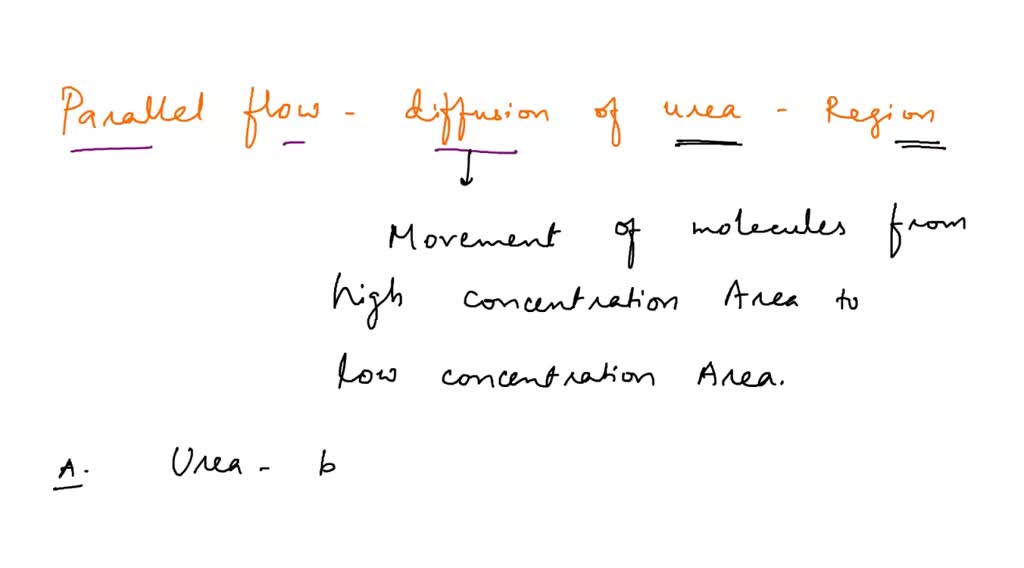 Parallel flow - diffusion of urea - Region
Movement of molecules from
high concentration Area to
low concentration Area.
A. Urea - b